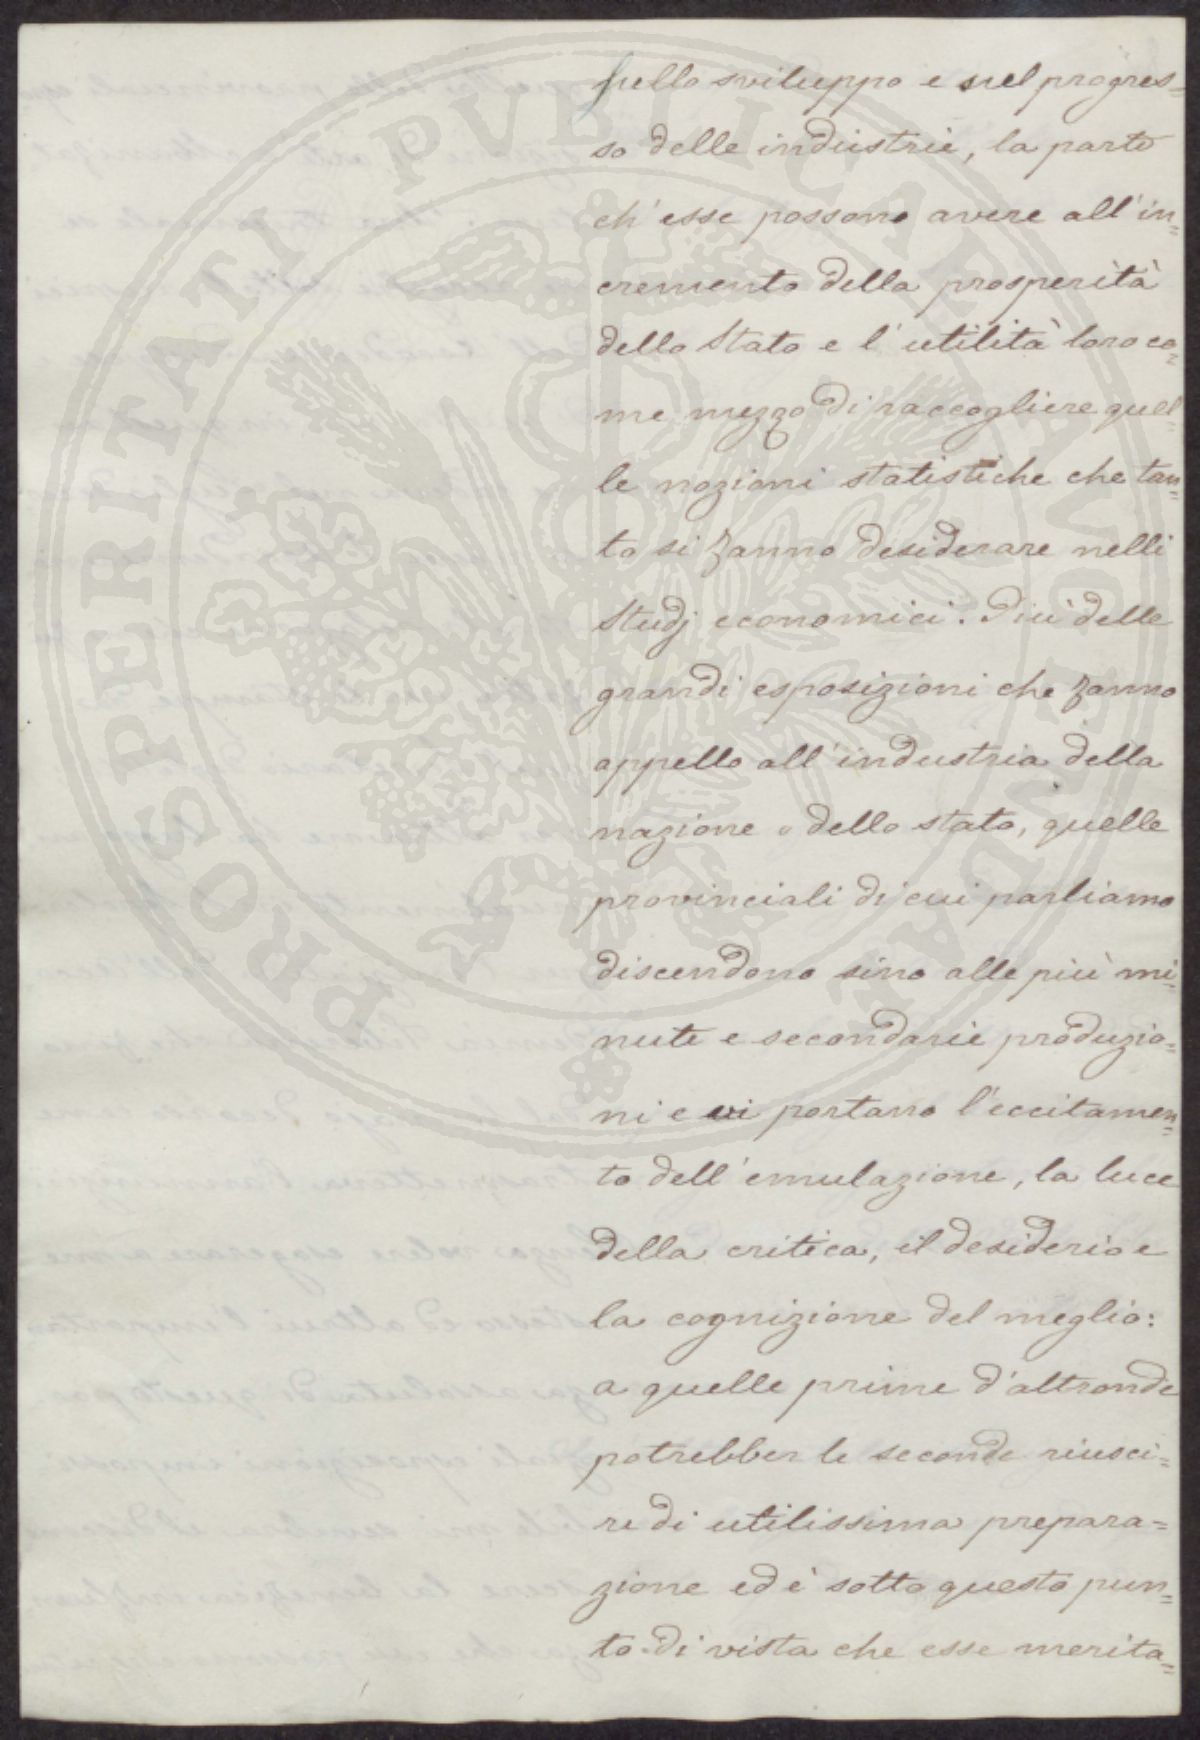 sullo sviluppo e sul progres=
so delle industrie, la parte
ch'esse possono avere all'in=
cremento della prosperità
dello Stato e l'utilità loro co=
me mezzo di raccogliere quel=
le nozioni statistiche che tan=
to si fanno desiderare nelli
Studj economici. Più delle
grandi esposizioni che fanno
appello all'industria della
nazione o dello stato, quelle
provinciali di cui parliamo
discendono sino alle più mi=
nute e secondarie produzio=
ni e vi portano l'eccitamen=
to dell'emulazione, la luce
della critica, il desiderio e
la cognizione del meglio:
a quelle prime d'altronde
potrebber le seconde riusci=
re di utilissima prepara=
zione ed è sotto questo pun=
to di vista che esse merita=
PROSPERITATI PVBLICAE AVGENDAE